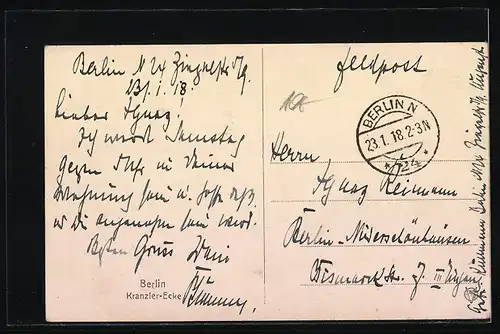 Berlin N 24
23.1.18.
Lieber Ignaz!
Ich werde Samstag
gegen Uhr in Deiner
Wohnung sein u. hoffe daß
es Dir angenehm sein wird.
Besten Gruss Dein
Berlin
Kranzler-Ecke
Feldpost
BERLIN N
23.1.18.2-3N
*24*
Herrn
Ignaz Reimann
Berlin-Niederschönhausen
Bismarck Str. 7 III